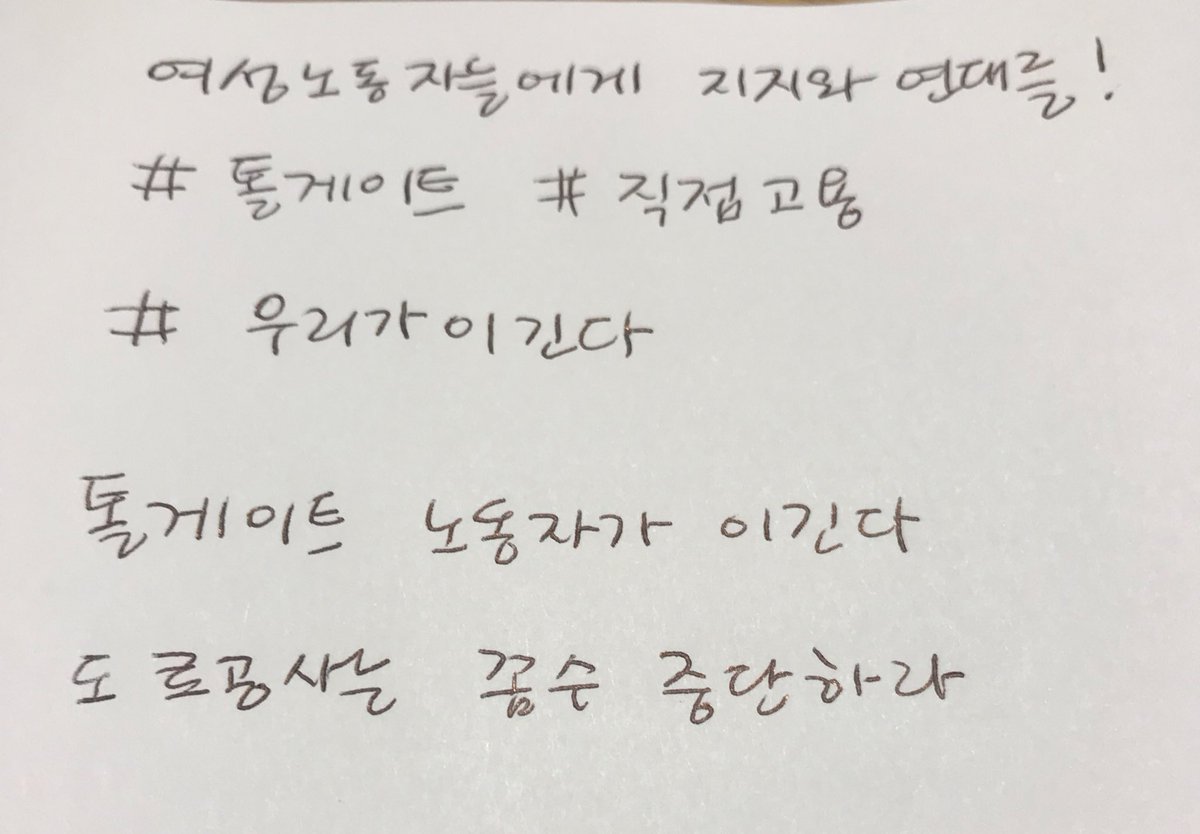 여성노동자들에게 지지와 연대를!
# 톨게이트 # 직접고용
# 우리가이긴다
톨게이트 노동자가 이긴다
도로공사는 꼼수 중단하라